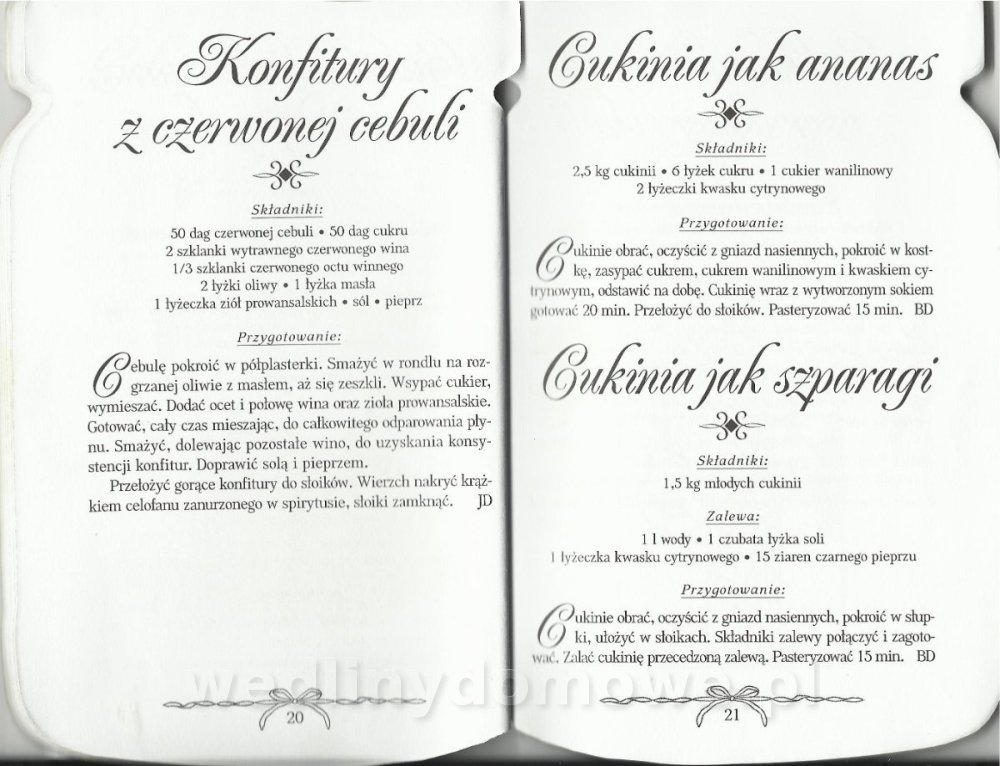 Konfitury
z czerwonej cebuli
Składniki:
50 dag czerwonej cebuli • 50 dag cukru
2 szklanki wytrawnego czerwonego wina
1/3 szklanki czerwonego octu winnego
2 łyżki oliwy • 1 łyżka masła
1 łyżeczka ziół prowansalskich • sól • pieprz
Przygotowanie:
Cebulę pokroić w półplasterki. Smażyć w rondlu na roz-
grzanej oliwie z masłem, aż się zeszkli. Wsypać cukier,
wymieszać. Dodać ocet i połowę wina oraz zioła prowansalskie.
Gotować, cały czas mieszając, do całkowitego odparowania pły-
nu. Smażyć, dolewając pozostałe wino, do uzyskania konsy-
stencji konfitur. Doprawić solą i pieprzem.
Przełożyć gorące konfitury do słoików. Wierzch nakryć krąż-
kiem celofanu zanurzonego w spirytusie, słoiki zamknąć. JD
20
Cukinia jak ananas
Składniki:
2,5 kg cukinii • 6 łyżek cukru • 1 cukier wanilinowy
2 łyżeczki kwasku cytrynowego
Przygotowanie:
Cukinie obrać, oczyścić z gniazd nasiennych, pokroić w kost-
kę, zasypać cukrem, cukrem wanilinowym i kwaskiem cy-
trynowym, odstawić na dobę. Cukinię wraz z wytworzonym sokiem
gotować 20 min. Przełożyć do słoików. Pasteryzować 15 min. BD
Cukinia jak szparagi
Składniki:
1,5 kg młodych cukinii
Zalewa:
1 l wody • 1 czubata łyżka soli
1 łyżeczka kwasku cytrynowego • 15 ziaren czarnego pieprzu
Przygotowanie:
Cukinie obrać, oczyścić z gniazd nasiennych, pokroić w słup-
ki, ułożyć w słoikach. Składniki zalewy połączyć i zagoto-
wać. Zalać cukinię przecedzoną zalewą. Pasteryzować 15 min. BD
21
wedlinydomowe.pl